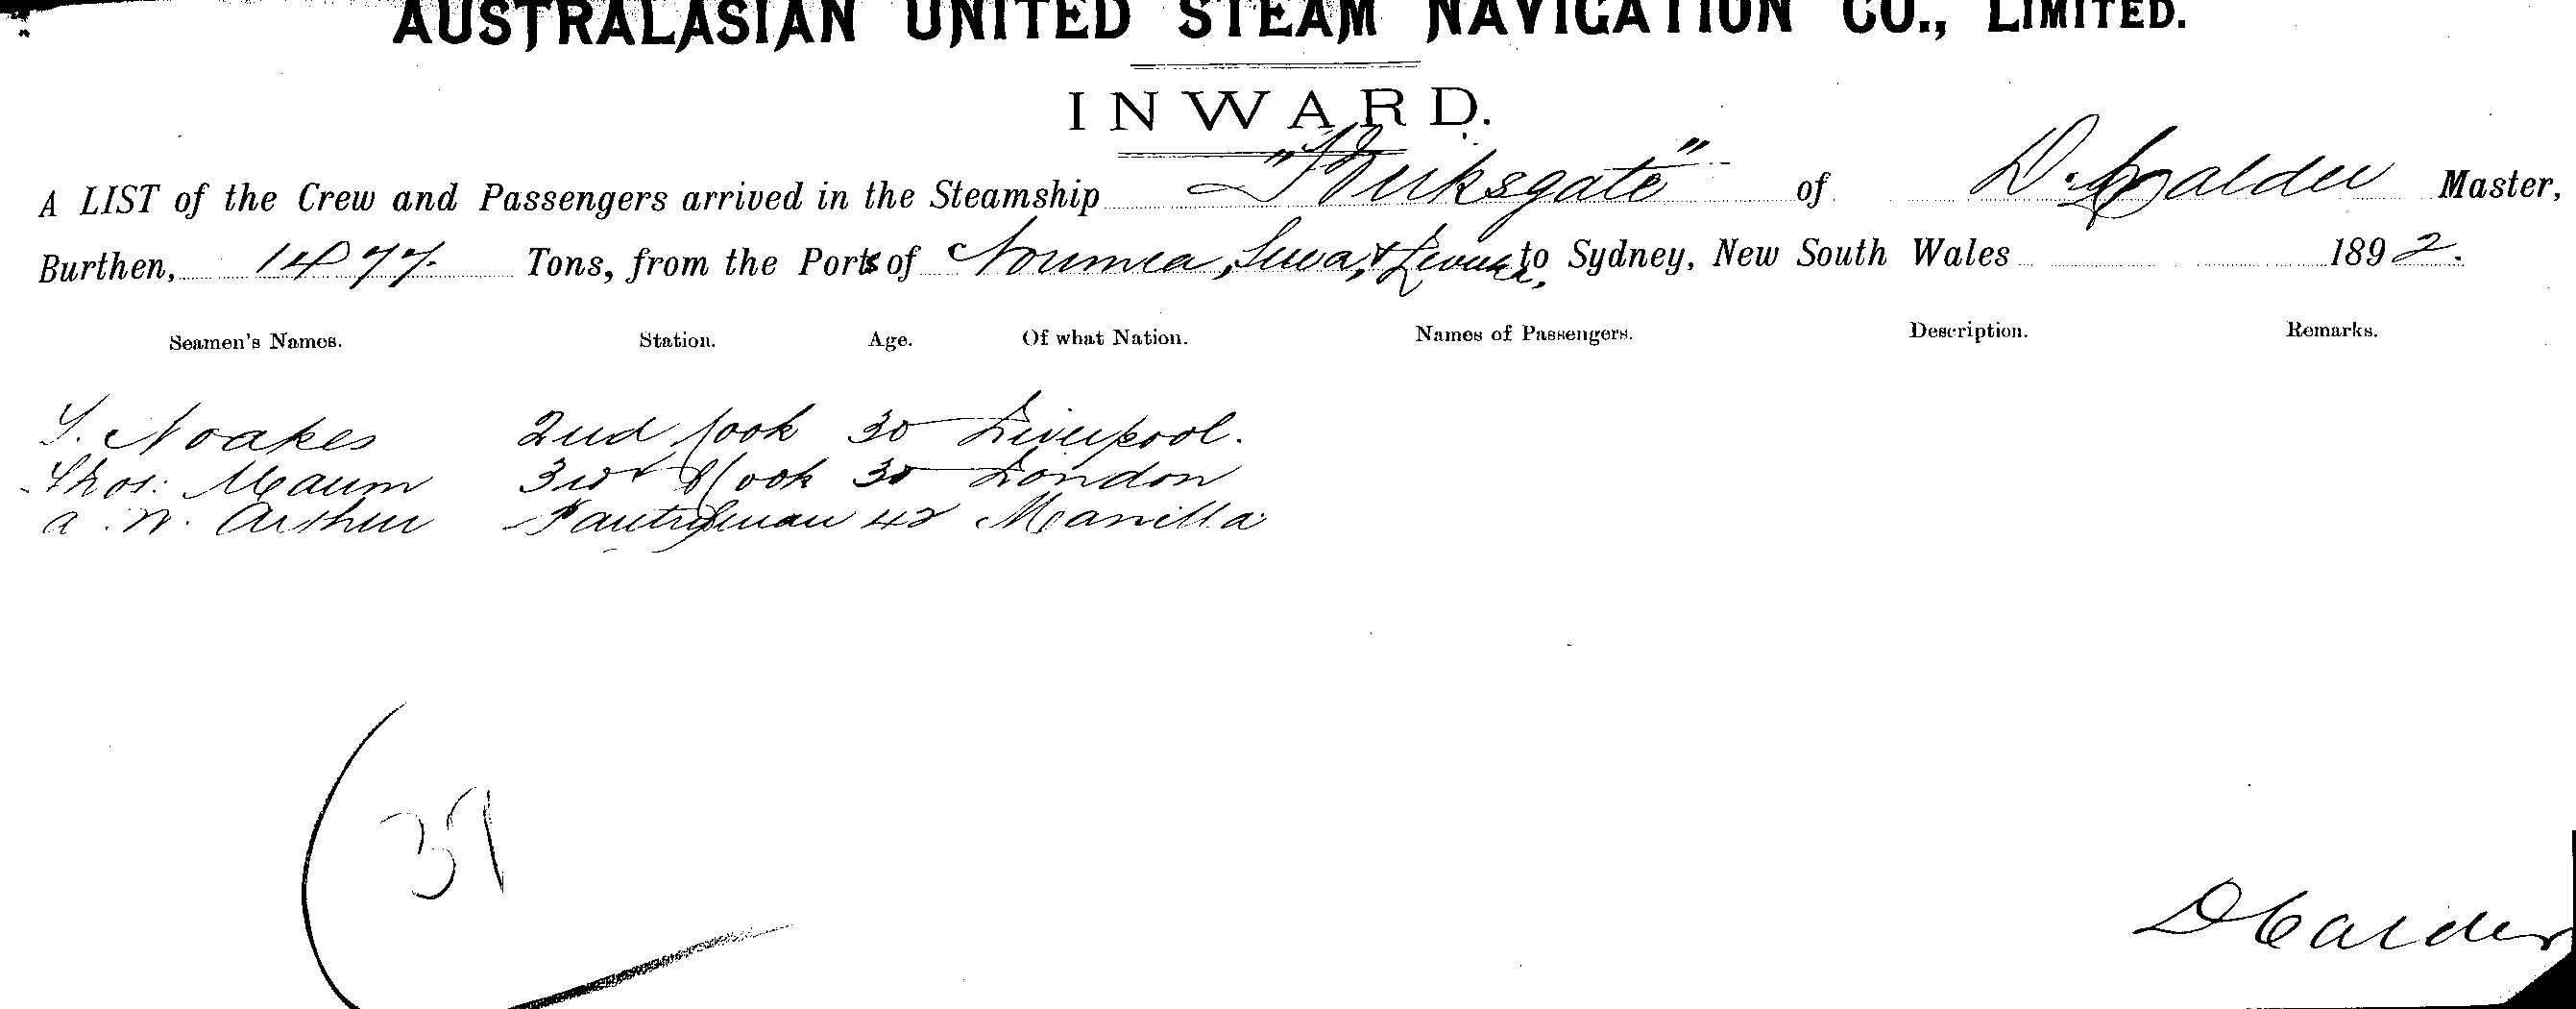 AUSTRALASIAN UNITED STEAM NAVIGATION CO., LIMITED.
INWARD.
A LIST of the Crew and Passengers arrived in the Steamship "Birksgate" of D. Calder Master,
Burthen, 1477 Tons, from the Ports of Noumea, Suva, & Levuka, to Sydney, New South Wales 1892.
Seamen's Names. Station. Age. Of what Nation. Names of Passengers. Description. Remarks.
Noakes 2nd Cook 30 Liverpool.
Thos: Maum 3rd Cook 30 London
A. W. Arthur Pantryman 42 Manilla
D Calder